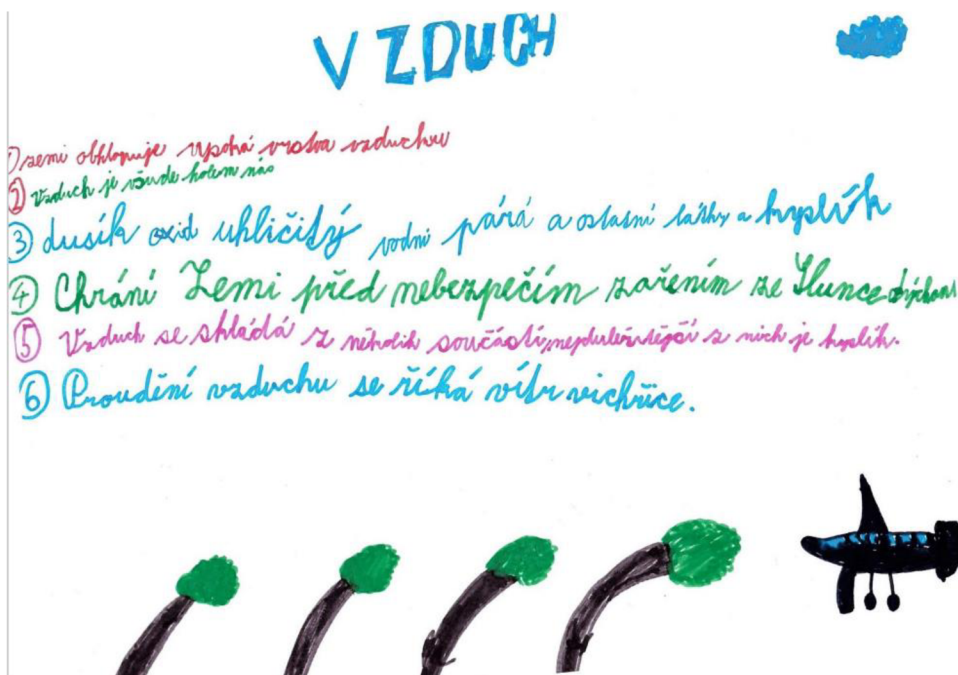 VZDUCH
① zemi obklopuje vysoká vrstva vzduchu
② Vzduch je všude kolem nás
③ dusík oxid uhličitý vodní párá a ostatní látky a kyslík
④ Chrání Zemi před nebezpečím zařením ze Slunce
⑤ Vzduch se skládá z několik součástí, nejduležitější z nich je kyslík.
⑥ Proudění vzduchu se říká vítr vichřice.